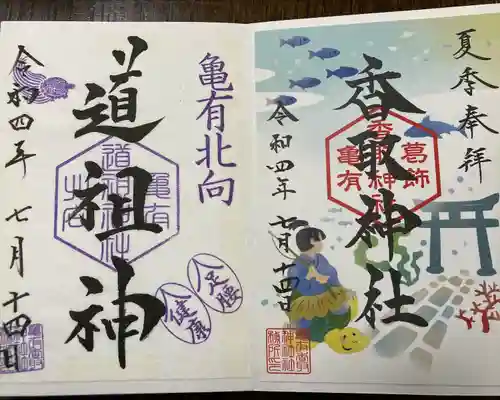 夏季奉拝
香取神社
葛飾
香取神社
亀有
令和四年 七月十四日
亀有北向
道祖神
亀有
道祖神社
足腰
健康
令和四年 七月十四日